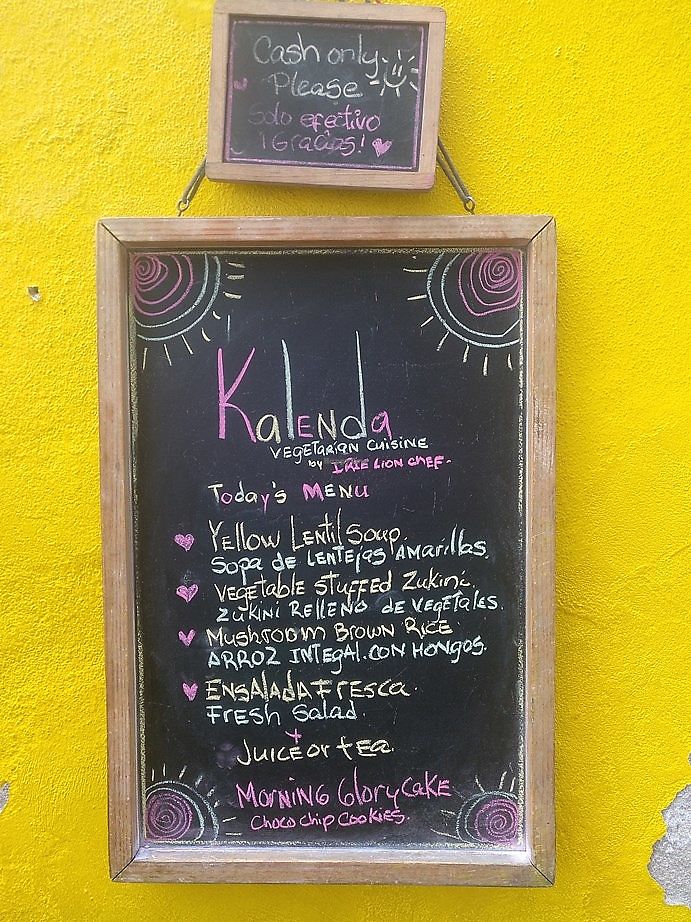 Cash only
Please
Solo efectivo
¡Gracias!
Kalenda
VEGETARIAN CUISINE
by IRIE LION CHEF.
Today's MENU
YELLOW LENTIL SOUP.
SOPA DE LENTEJAS AMARILLAS.
VEGETABLE STUFFED ZUKINI.
ZUKINI RELLENO DE VEGETALES.
MUSHROOM BROWN RICE
ARROZ INTEGAL.CON HONGOS.
ENSALADA FRESCA.
FRESH Salad.
+
JUICE or tEa.
MORNING Glory CAKE
Choco chip Cookies.